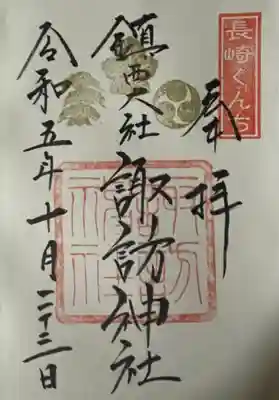 長崎くんち
奉拝
鎮西大社諏訪神社
令和五年十月二十三日